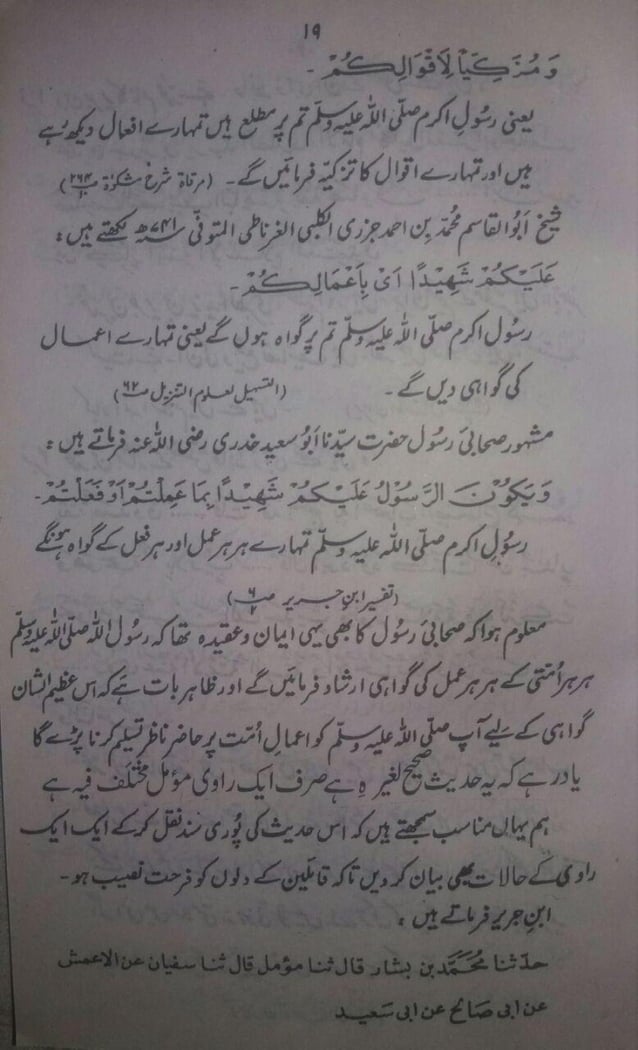 ۱۹
وَمُزَكِّيًا لِأَقْوَالِكُمْ۔
یعنی رسولِ اکرم صلّی اللہ علیہ وسلّم تم پر مطلع ہیں تمہارے افعال دیکھ رہے
ہیں اور تمہارے اقوال کا تزکیہ فرمائیں گے۔ (مرقاۃ شرح مشکوٰۃ
شیخ ابو القاسم محمّد بن احمد جزری الکلبی الغرناطی المتوفّٰی ۷۴۱ھ لکھتے ہیں:
عَلَيْكُمْ شَهِيْدًا اَىْ بِاَعْمَالِكُمْ۔
رسول اکرم صلّی اللہ علیہ وسلّم تم پر گواہ ہوں گے یعنی تمہارے اعمال
کی گواہی دیں گے۔ (التسہیل لعلوم التنزیل ص۶۲)
مشہور صحابیٔ رسول حضرت سیّدنا ابو سعید خدری رضی اللہ عنہ فرماتے ہیں:
وَيَكُوْنَ الرَّسُوْلُ عَلَيْكُمْ شَهِيْدًا بِمَا عَمِلْتُمْ اَوْ فَعَلْتُمْ۔
رسولِ اکرم صلّی اللہ علیہ وسلّم تمہارے ہر ہر عمل اور ہر فعل کے گواہ ہونگے
(تفسیر ابنِ جریر
معلوم ہوا کہ صحابیٔ رسول کا بھی یہی ایمان و عقیدہ تھا کہ رسول اللہ صلّی اللہ علیہ وسلّم
ہر ہر اُمتی کے ہر ہر عمل کی گواہی ارشاد فرمائیں گے اور ظاہر بات ہے کہ اس عظیم الشان
گواہی کے لیے آپ صلّی اللہ علیہ وسلّم کو اعمالِ اُمّت پر حاضر ناظر تسلیم کرنا پڑے گا
یاد رہے کہ یہ حدیث صحیح لغیرہٖ ہے صرف ایک راوی مؤمل مختلف فیہ ہے
ہم یہاں مناسب سمجھتے ہیں کہ اس حدیث کی پُوری سند نقل کر کے ایک ایک
راوی کے حالات بھی بیان کر دیں تاکہ قائلین کے دلوں کو فرحت نصیب ہو۔
ابنِ جریر فرماتے ہیں:
حدّثنا مُحَمَّد بن بشار قال ثنا مؤمل قال ثنا سفیان عن الاعمش
عن ابی صالح عن ابی سَعید